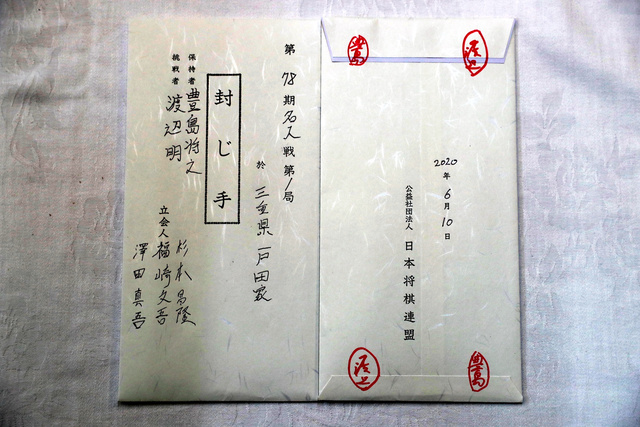 第78期名人戦第1局
於 三重県 戸田家
封じ手
保持者 豊島将之
挑戦者 渡辺明
立会人 杉本昌隆
福崎文吾
澤田真吾
豊島
渡辺
2020年6月10日
公益社団法人 日本将棋連盟
渡辺
豊島